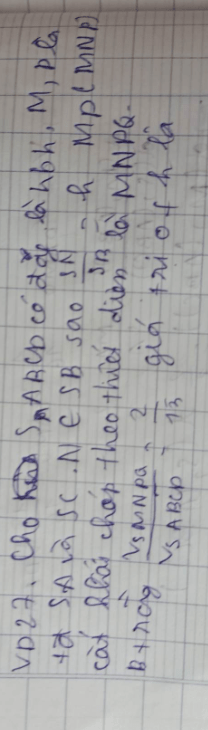 VD27. Cho S.ABCD có đáy là hbh, M, P là
tđ SA và SC. N ∈ SB sao SN/SB = h Mp(MNP)
cắt khối chóp theo thiết diện là MNPQ.
Biết rằng V_SMNPQ/V_SABCD = 2/13 giá trị of h là